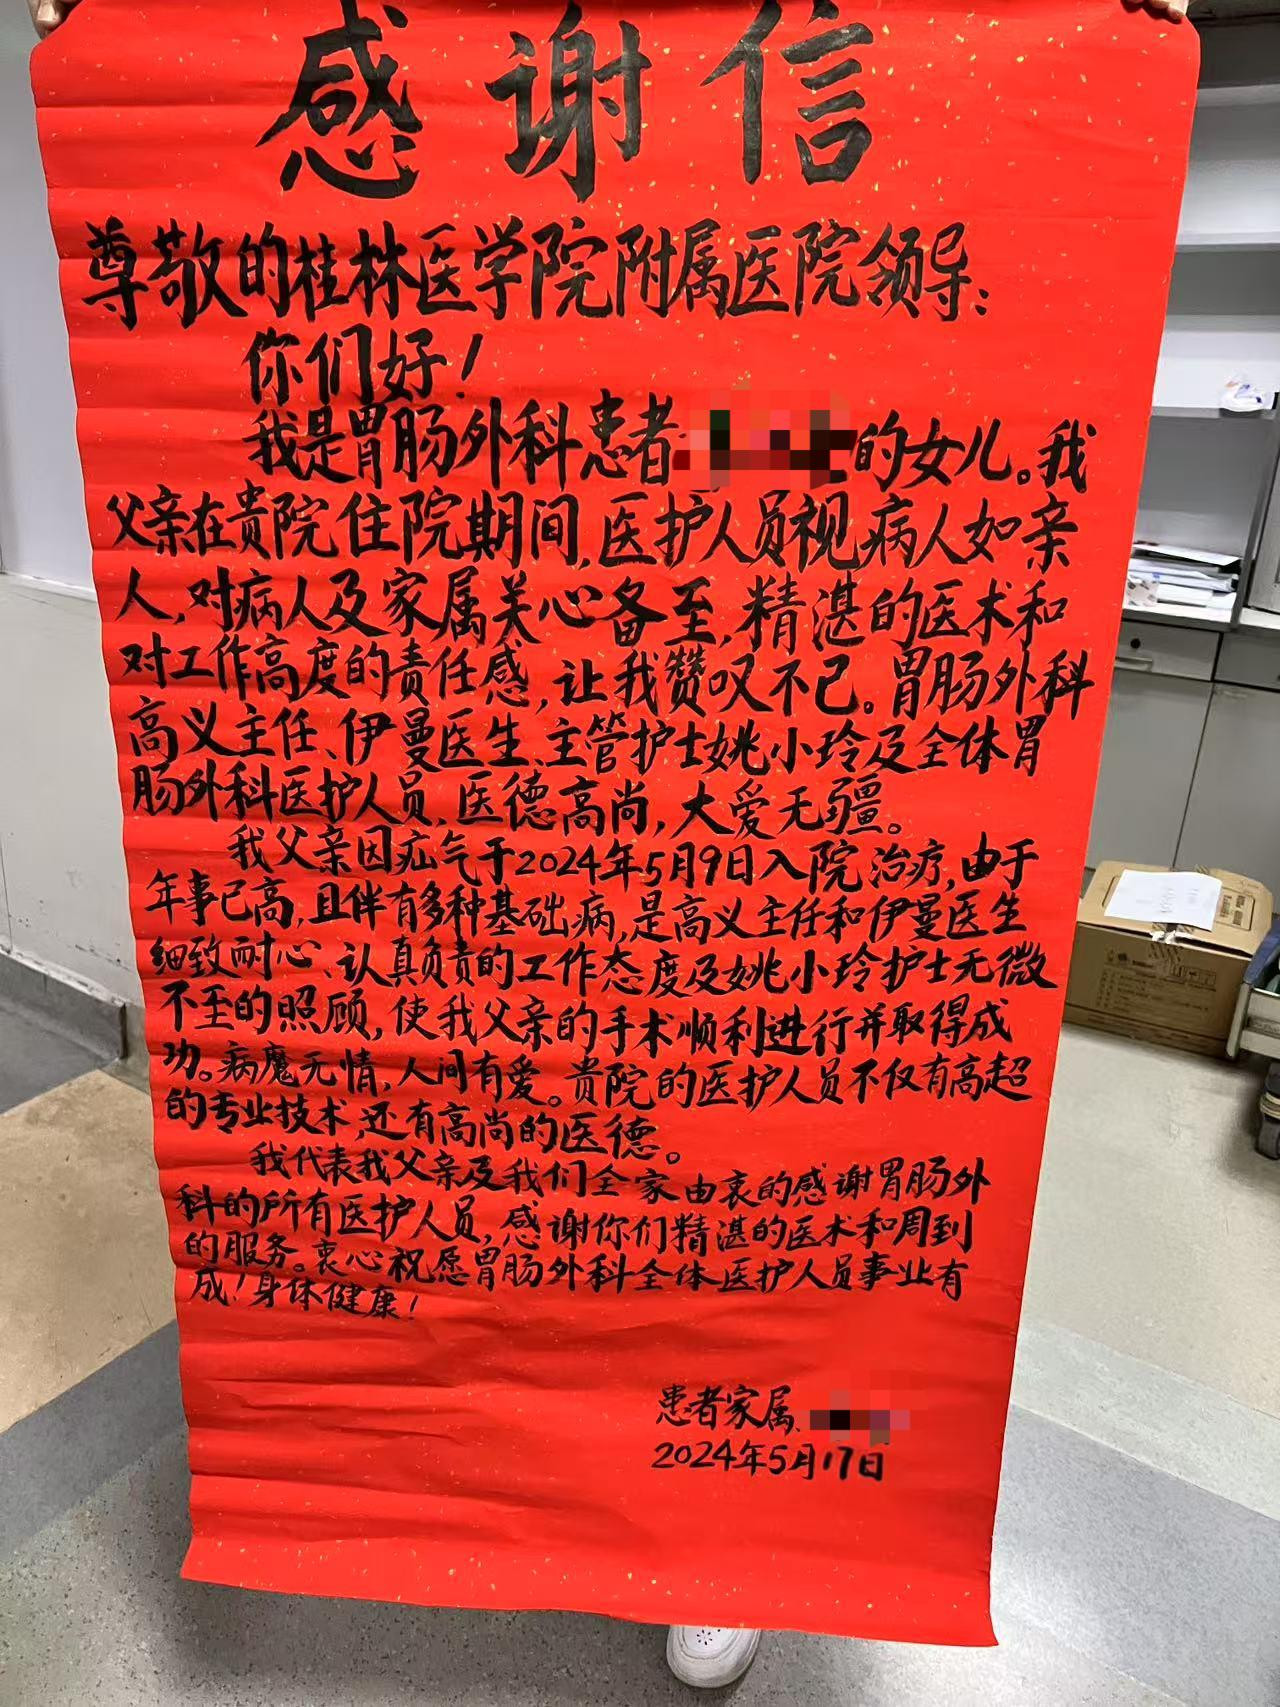 感谢信
尊敬的桂林医学院附属医院领导：
你们好！
我是胃肠外科患者的女儿。我
父亲在贵院住院期间，医护人员视病人如亲
人，对病人及家属关心备至，精湛的医术和
对工作高度的责任感，让我赞叹不已。胃肠外科
高义主任、伊曼医生、主管护士姚小玲及全体胃
肠外科医护人员，医德高尚，大爱无疆。
我父亲因疝气于2024年5月9日入院治疗，由于
年事已高，且伴有多种基础病，是高义主任和伊曼医生
细致耐心、认真负责的工作态度及姚小玲护士无微
不至的照顾，使我父亲的手术顺利进行并取得成
功。病魔无情，人间有爱。贵院的医护人员不仅有高超
的专业技术，还有高尚的医德。
我代表我父亲及我们全家由衷的感谢胃肠外
科的所有医护人员，感谢你们精湛的医术和周到
的服务。衷心祝愿胃肠外科全体医护人员事业有
成！身体健康！
患者家属、
2024年5月17日